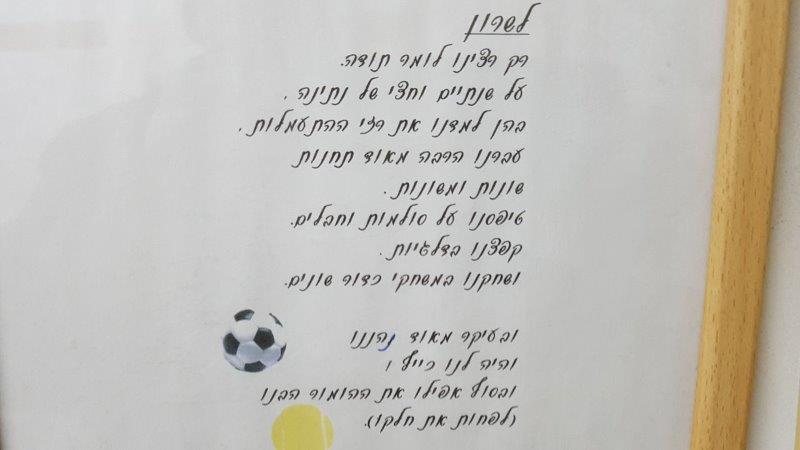 לשרון
רק רצינו לומר תודה.
על שנתיים וחצי של נתינה,
בהן למדנו את רזי ההתעמלות,
עברנו הרבה מאוד תחנות
שונות ומשונות.
טיפסנו על סולמות וחבלים.
קפצנו בדלגיות.
ושחקנו במשחקי כדור שונים.
ובעיקר מאוד נהננו
והיה לנו כייף!
ובסוף אפילו את ההומור הבנו
(לפחות את חלקו).